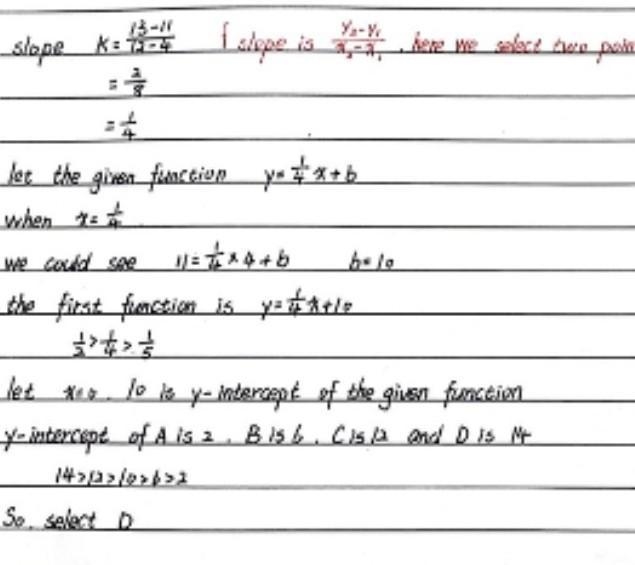 slope K = \frac{13-11}{12-4} [ slope is \frac{y_2-y_1}{x_2-x_1} , here we select two poin
= \frac{2}{8}
= \frac{1}{4}
let the given function y = \frac{1}{4} x + b
when x = \frac{1}{4}
we could see 11 = \frac{1}{4} × 4 + b b = 10
the first function is y = \frac{1}{4} x + 10
\frac{1}{2} > \frac{1}{4} > \frac{1}{5}
let x = 0 . 10 is y-intercept of the given function
y-intercept of A is 2 , B is 6 , C is 12 and D is 14
14 > 12 > 10 > 6 > 2
So, select D